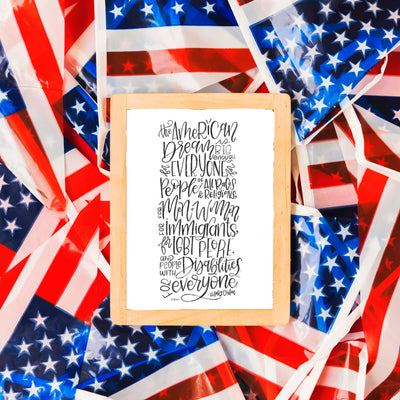 the American
Dream is
BIG
enough
for EVERYONE
for
People of All Races
& Religions,
FOR Men, Women
FOR Immigrants,
for LGBT PEOPLE,
AND
PEOPLE Disabilities
WITH
for everyone